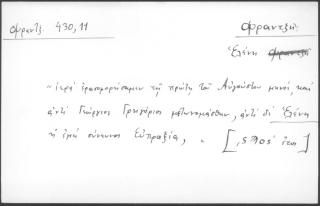 Φραντζ. 430,11
Φραντζῆ
Ἑλένη
"ἱερὰ ἐρασμοφορέσαμεν τῇ πρώτῃ τοῦ Αὐγούστου μηνός, καὶ
ἀντὶ Γεώργιος Γρηγόριος μετωνομάσθην, ἀντὶ δὲ Ἑλένη
ἡ ἐμὴ σύνευνος Εὐπραξία, " [,ςϠος' ἔτει]